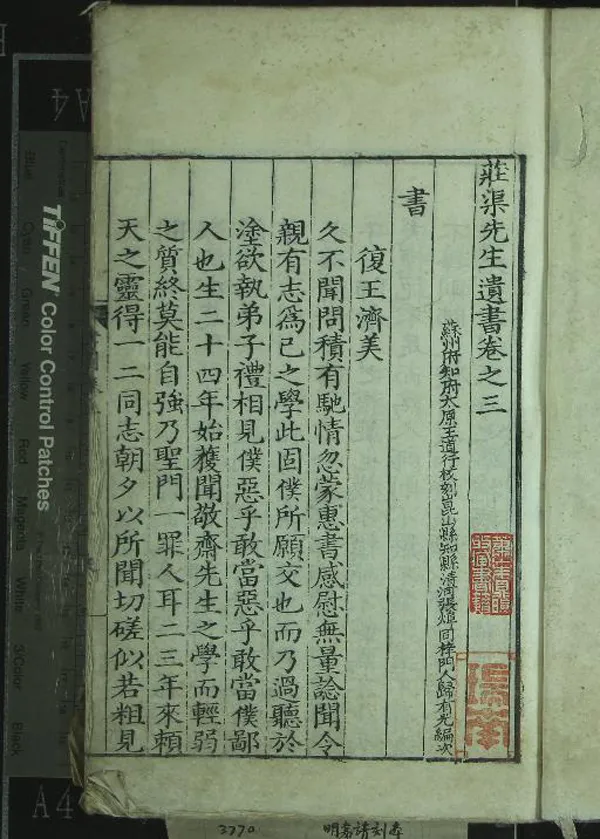 莊渠先生遺書卷之三
蘇州府知府太原王道行校刻崑山縣知縣清河張焯同梓門人歸有光編次
書
復王濟美
久不聞問積有馳情忽蒙惠書感慰無量諗聞令
親有志爲己之學此固僕所願交也而乃過聽於
塗欲執弟子禮相見僕惡乎敢當惡乎敢當僕鄙
人也生二十四年始獲聞敬齋先生之學而輕弱
之質終莫能自強乃聖門一罪人耳二三年來賴
天之靈得一二同志朝夕以所聞切磋似若粗見
TIFFEN Color Control Patches
Blue
Cyan
Green
Yellow
Red
Magenta
White
3/Color
Black
A4
A4
3770
明嘉靖刻本